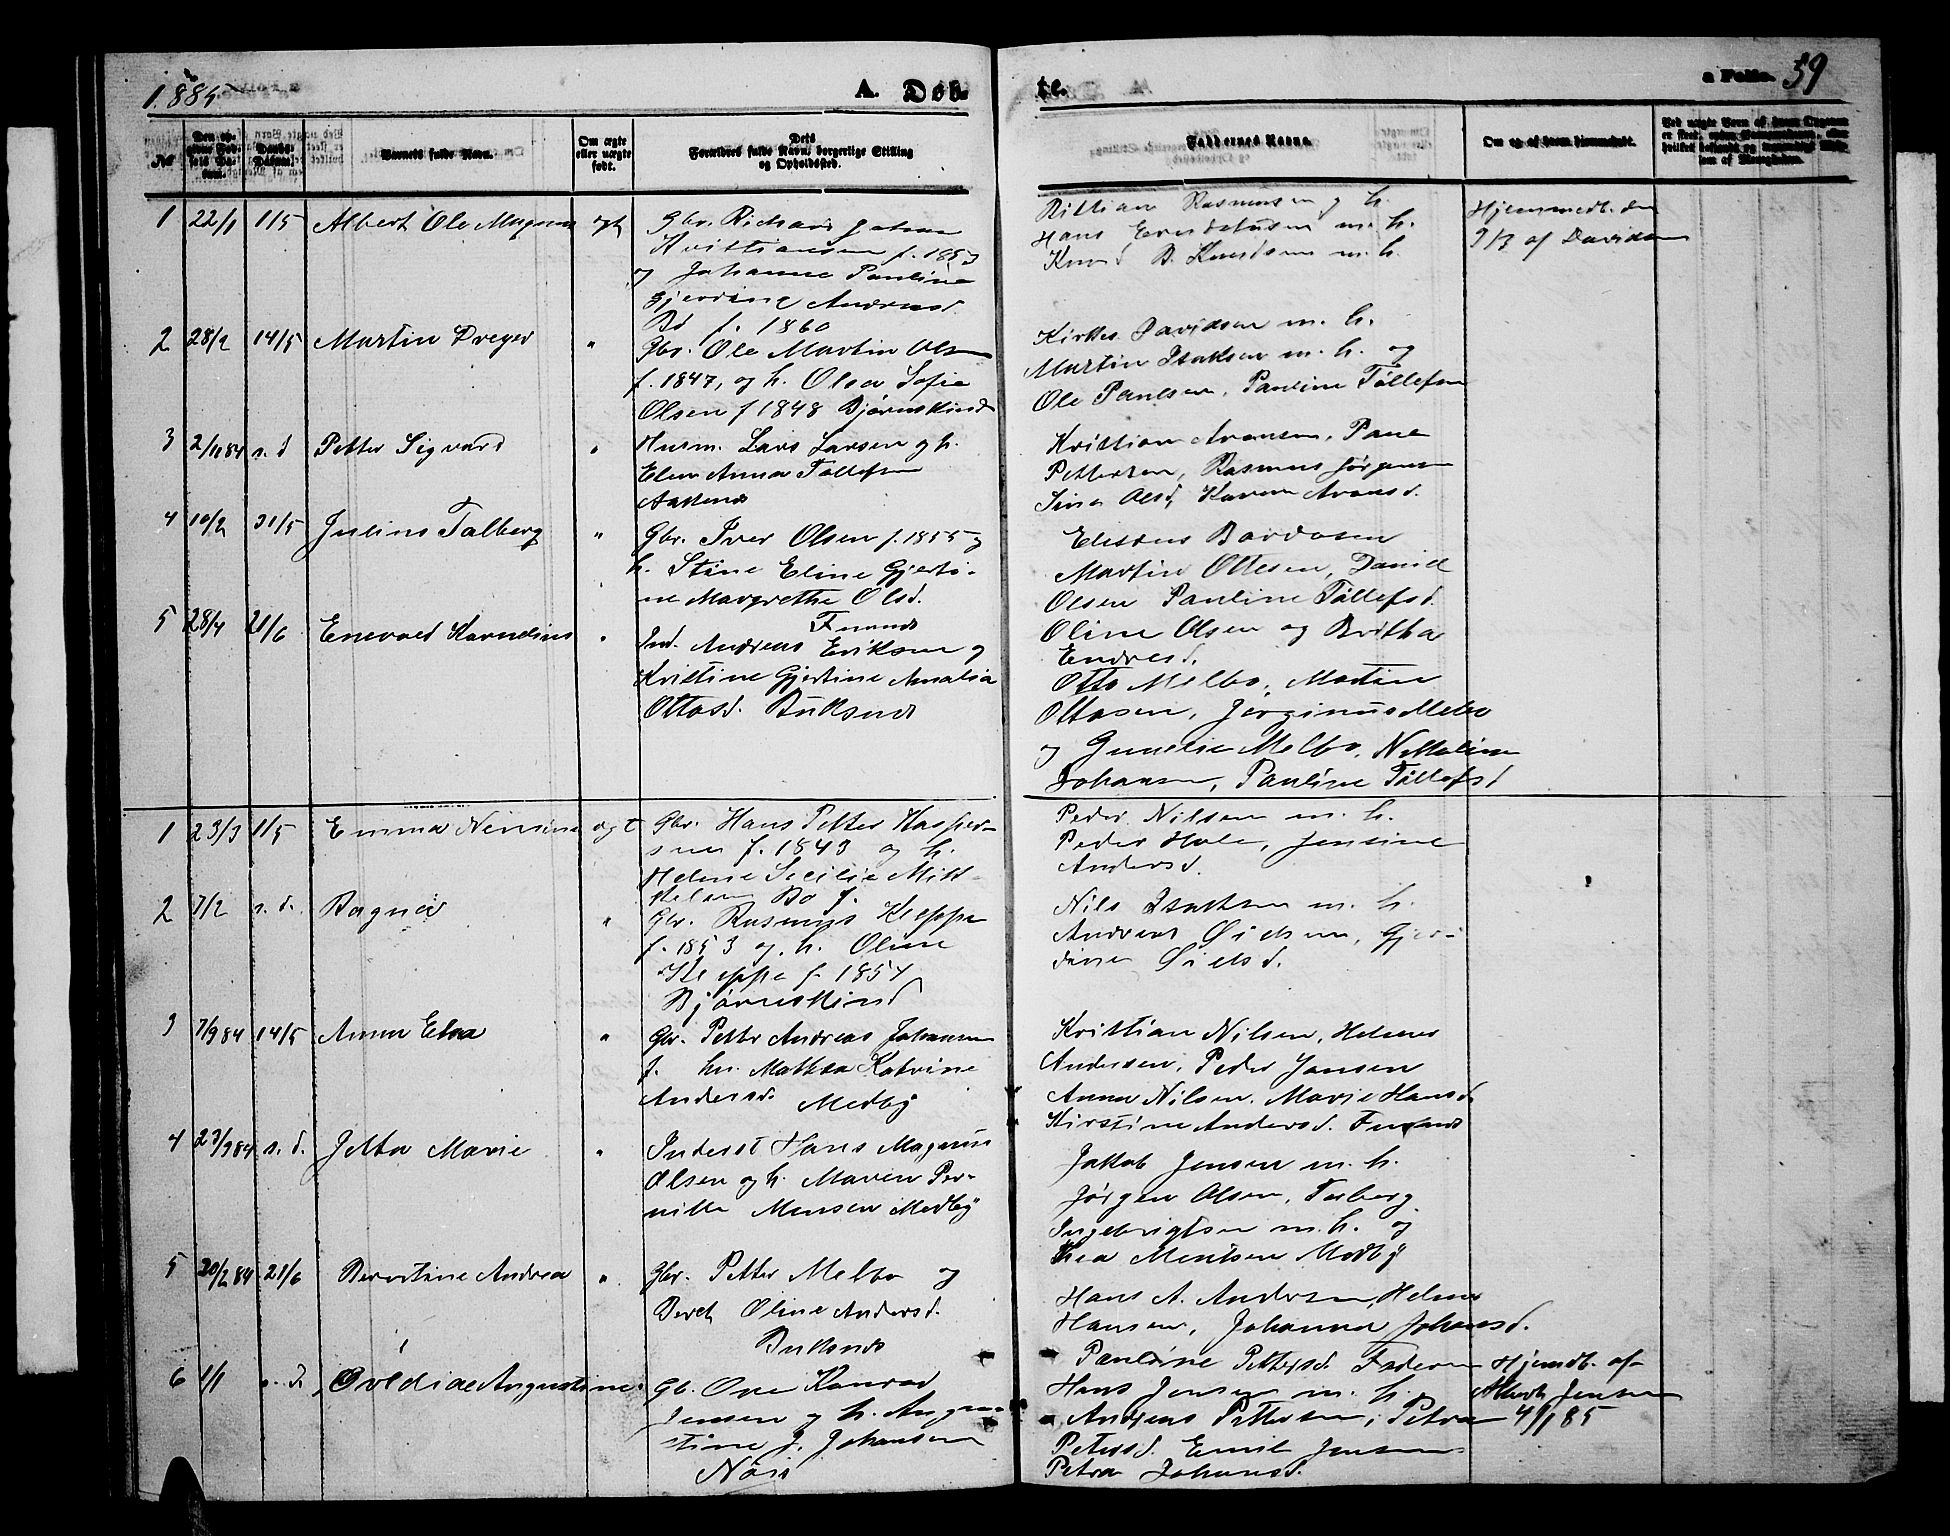 1885
A. Døb-
te.
a Folio. 59
№
Den op-
givne Fød-
sels Da-
tum.
Daabs-
Datum.
Barnets fulde Navn.
Om ægte
eller uægte
født.
Dets
Forældres fulde Navn, borgerlige Stilling
og Opholdssted.
Faddernes Navne.
Om og af hvem hjemmedøbt.
1 22/1 1/5 Albert Ole Magnus ægt
Gbr. Richard Johan
Kristiansen f. 1853
og Johanne Pauline
Gjerdine Andreasd.
Bø f. 1860
Kristian Rasmussen og h.
Hans m. h.
Knud B. Knudsen m. h.
Hjemmedb. den
9/3 af Davidsen
2 28/2 14/5 Martin Dreyer "
Gbr. Ole Martin Olsen
f. 1847, og h. Olea Sofie
Olsen f 1848 Bjørnskind
Kirkes. Davidsen m. h.
Martin Isaksen m. h. og
Ole Paulsen, Pauline Tøllefsen
3 2/11 84 s. d Petter Sigvard "
Husm. Lars Larsen og h.
Elen Anna Tøllefsen
Kristian Aronsen, Paul
Pettersen, Rasmus Jørgensen
Sina Olsd, Karen Aronsd.
4 10/2 31/5 Julius Talberg "
Gbr. Iver Olsen f. 1855 og
h. Stine Eline Gjerti-
ne Margrethe Olsd.
Elisæus Bardosen
Martin Ottesen, Daniel
Olsen Pauline Tøllefsd.
Oline Olsen og Britha
Endresd.
5 28/4 21/6 Enevold Kornelius "
Ind. Andreas Eriksen og
Kristine Gjertine Amalia
Ottosd. Buksnes
Otto Melbo, Martin
Ottosen, Jørginus Melbo
og Gunelie Melbo, N Maline
Johansen, Pauline Tøllefsd
1 23/3 1/5 Emma Nensine ægt
Gbr. Hans Petter Kasper-
sen f. 1843 og h.
Helene Secilie Mik-
kelsen Bø f.
Peder Nilsen m. h.
Peder Hole, Jensine
Andersd.
2 7/2 s. d. Dagna "
Gbr. Rasmus Kleppe
f. 1853 og h. Oline
Kleppe f. 1854
Bjørnskind
Nils Isaksen m. h.
Andreas Eidsen, Gjer-
dine Eidsd.
3 7/9 84 14/5 Anna Elsa "
Gbr. Petter Andreas Johansen
f. hu. Mathea Katrine
Andersd. Medby
Kristian Nilsen, Helmer
Andersen, Peder Jansen
Anna Nilsen. Marie Hansd.
Kirstine Andersd.
4 23/9 84 s. d. Jetta Marie "
Inderst Hans Magnus
Olsen og h. Maren Per-
nille Monsen Medby
Jakob Jensen m. h.
Jørgen Olsen, Torberg
Ingebrigtsen m. h. og
Thea Mentsen Medby
5 20/2 84 21/6 Berntine Andrea "
Gbr. Petter Melbo og
Beret Oline Andersd.
Buksnes
Hans A. Andersen, Helmer
Hansen, Johanna Johansd.
Pauline Pettersd. Faderen
6 1/1 s. d. Ovldiae Augustine
Gb. Ove Konrad
Jensen og h. Augu-
stine J. Johansen
Nøis
Hans Jensen m. h.
Andreas Pettersen, Petra
Petersd. Emil Jensen
Petra Johansd.
Hjemdb. af
Albert Jensen
4/1 85